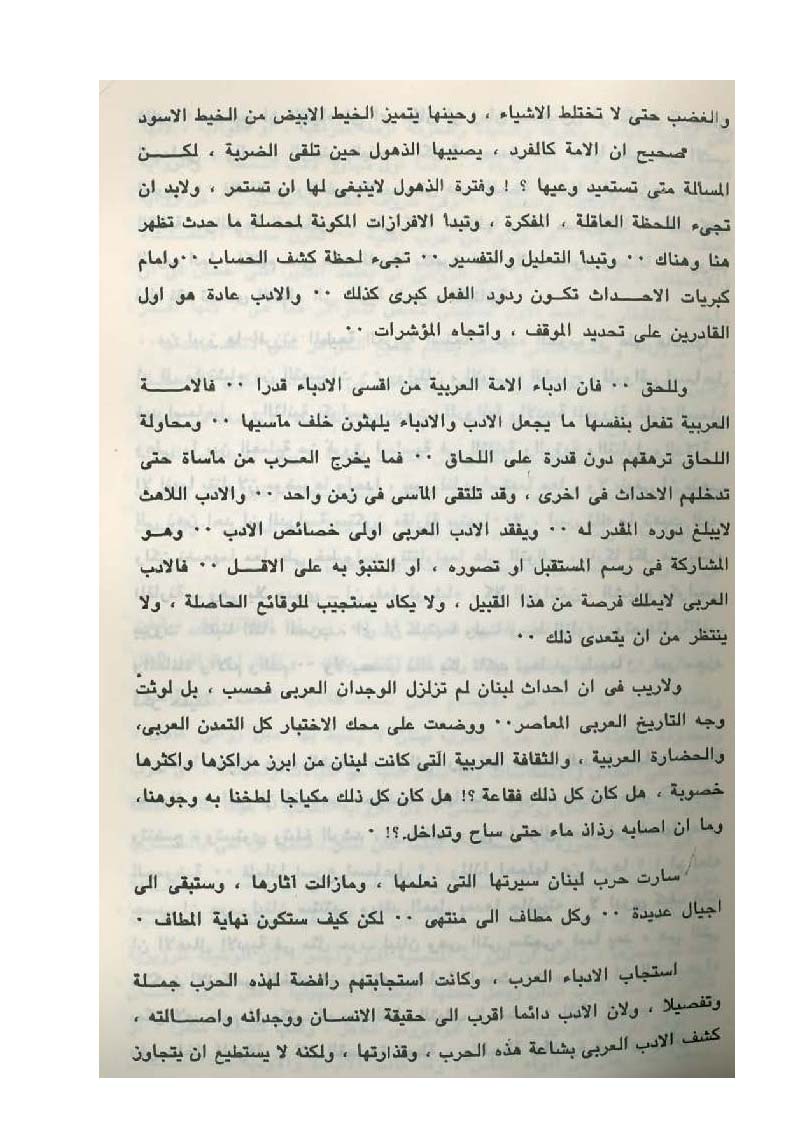 والغضب حتى لا تختلط الاشياء ، وحينها يتميز الخيط الابيض من الخيط الاسود
صحيح ان الامة كالفرد ، يصيبها الذهول حين تلقى الضربة ، لكــــن
المسألة متى تستعيد وعيها ؟ ! وفترة الذهول لاينبغى لها ان تستمر ، ولابد ان
تجىء اللحظة العاقلة ، المفكرة ، وتبدأ الافرازات المكونة لمحصلة ما حدث تظهر
هنا وهناك ٠٠ وتبدأ التعليل والتفسير ٠٠ تجىء لحظة كشف الحساب ٠٠وامام
كبريات الاحــداث تكـون ردود الفعل كبرى كذلك ٠٠ والادب عادة هو اول
القادرين على تحديد الموقف ، واتجاه المؤشرات ٠٠
وللحق ٠٠ فان ادباء الامة العربية من اقسى الادباء قدرا ٠٠ فالامــة
العربية تفعل بنفسها ما يجعل الادب والادباء يلهثون خلف مآسيها ٠٠ ومحاولة
اللحاق ترهقهم دون قدرة على اللحاق ٠٠ فما يخرج العـرب من مأساة حتى
تدخلهم الاحداث فى اخرى ، وقد تلتقى المآسى فى زمن واحد ٠٠ والادب اللاهث
لايبلغ دوره المقدر له ٠٠ ويفقد الادب العربى اولى خصائص الادب ٠٠ وهــو
المشاركة فى رسم المستقبل او تصوره ، او التنبؤ به على الاقــل ٠٠ فالادب
العربى لايملك فرصة من هذا القبيل ، ولا يكاد يستجيب للوقائع الحاصلة ، ولا
ينتظر من ان يتعدى ذلك ٠٠
ولاريب فى ان احداث لبنان لم تزلزل الوجدان العربى فحسب ، بل لوثت
وجه التاريخ العربى المعاصر٠٠ ووضعت على محك الاختبار كل التمدن العربى،
والحضارة العربية ، والثقافة العربية التى كانت لبنان من ابرز مراكزها واكثرها
خصوبة ، هل كان كل ذلك فقاعة ؟! هل كان كل ذلك مكياجا لطخنا به وجوهنا،
وما ان اصابه رذاذ ماء حتى ساح وتداخل.؟! ٠
سارت حرب لبنان سيرتها التى نعلمها ، ومازالت آثارها ، وستبقى الى
اجيال عديدة ٠٠ وكل مطاف الى منتهى ٠٠ لكن كيف ستكون نهاية المطاف ٠
استجاب الادباء العرب ، وكانت استجابتهم رافضة لهذه الحرب جمـلة
وتفصيلا ، ولان الادب دائما اقرب الى حقيقة الانســان ووجدانه واصــالته ،
كشف الادب العربى بشاعة هذه الحرب ، وقذارتها ، ولكنه لا يستطيع ان يتجاوز